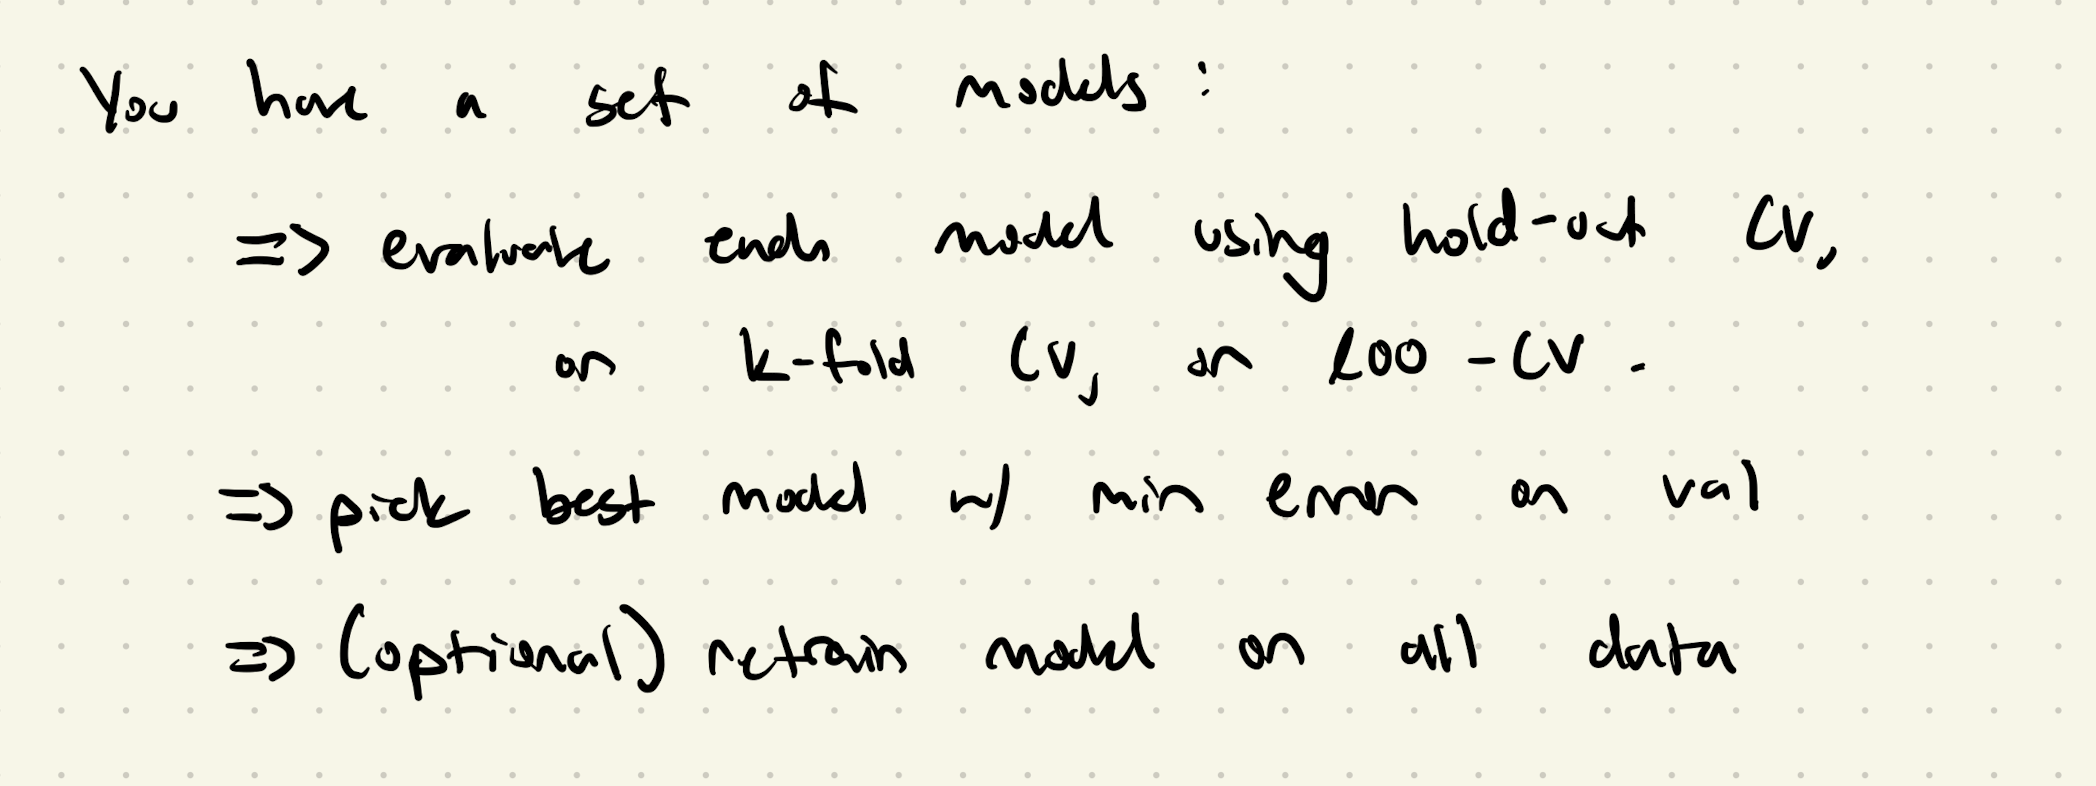 You have a set of models :
=> evaluate each model using hold-out CV,
or k-fold CV, or LOO-CV.
=> pick best model w/ min error on val
=> (optional) retrain model on all data